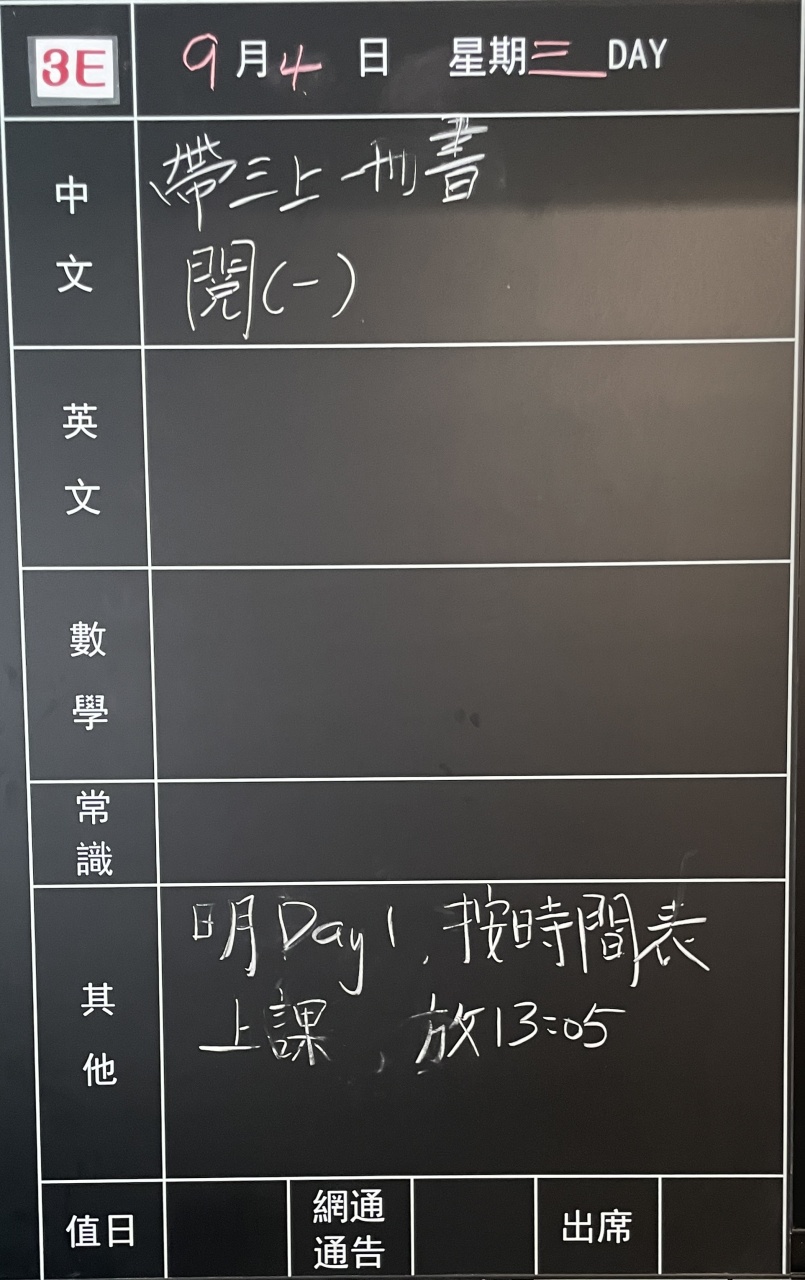 3E
9月4日 星期三DAY
中文
帶三上一冊書
閱(一)
英文
數學
常識
其他
明Day1,按時間表
上課,放13:05
值日
網通
通告
出席